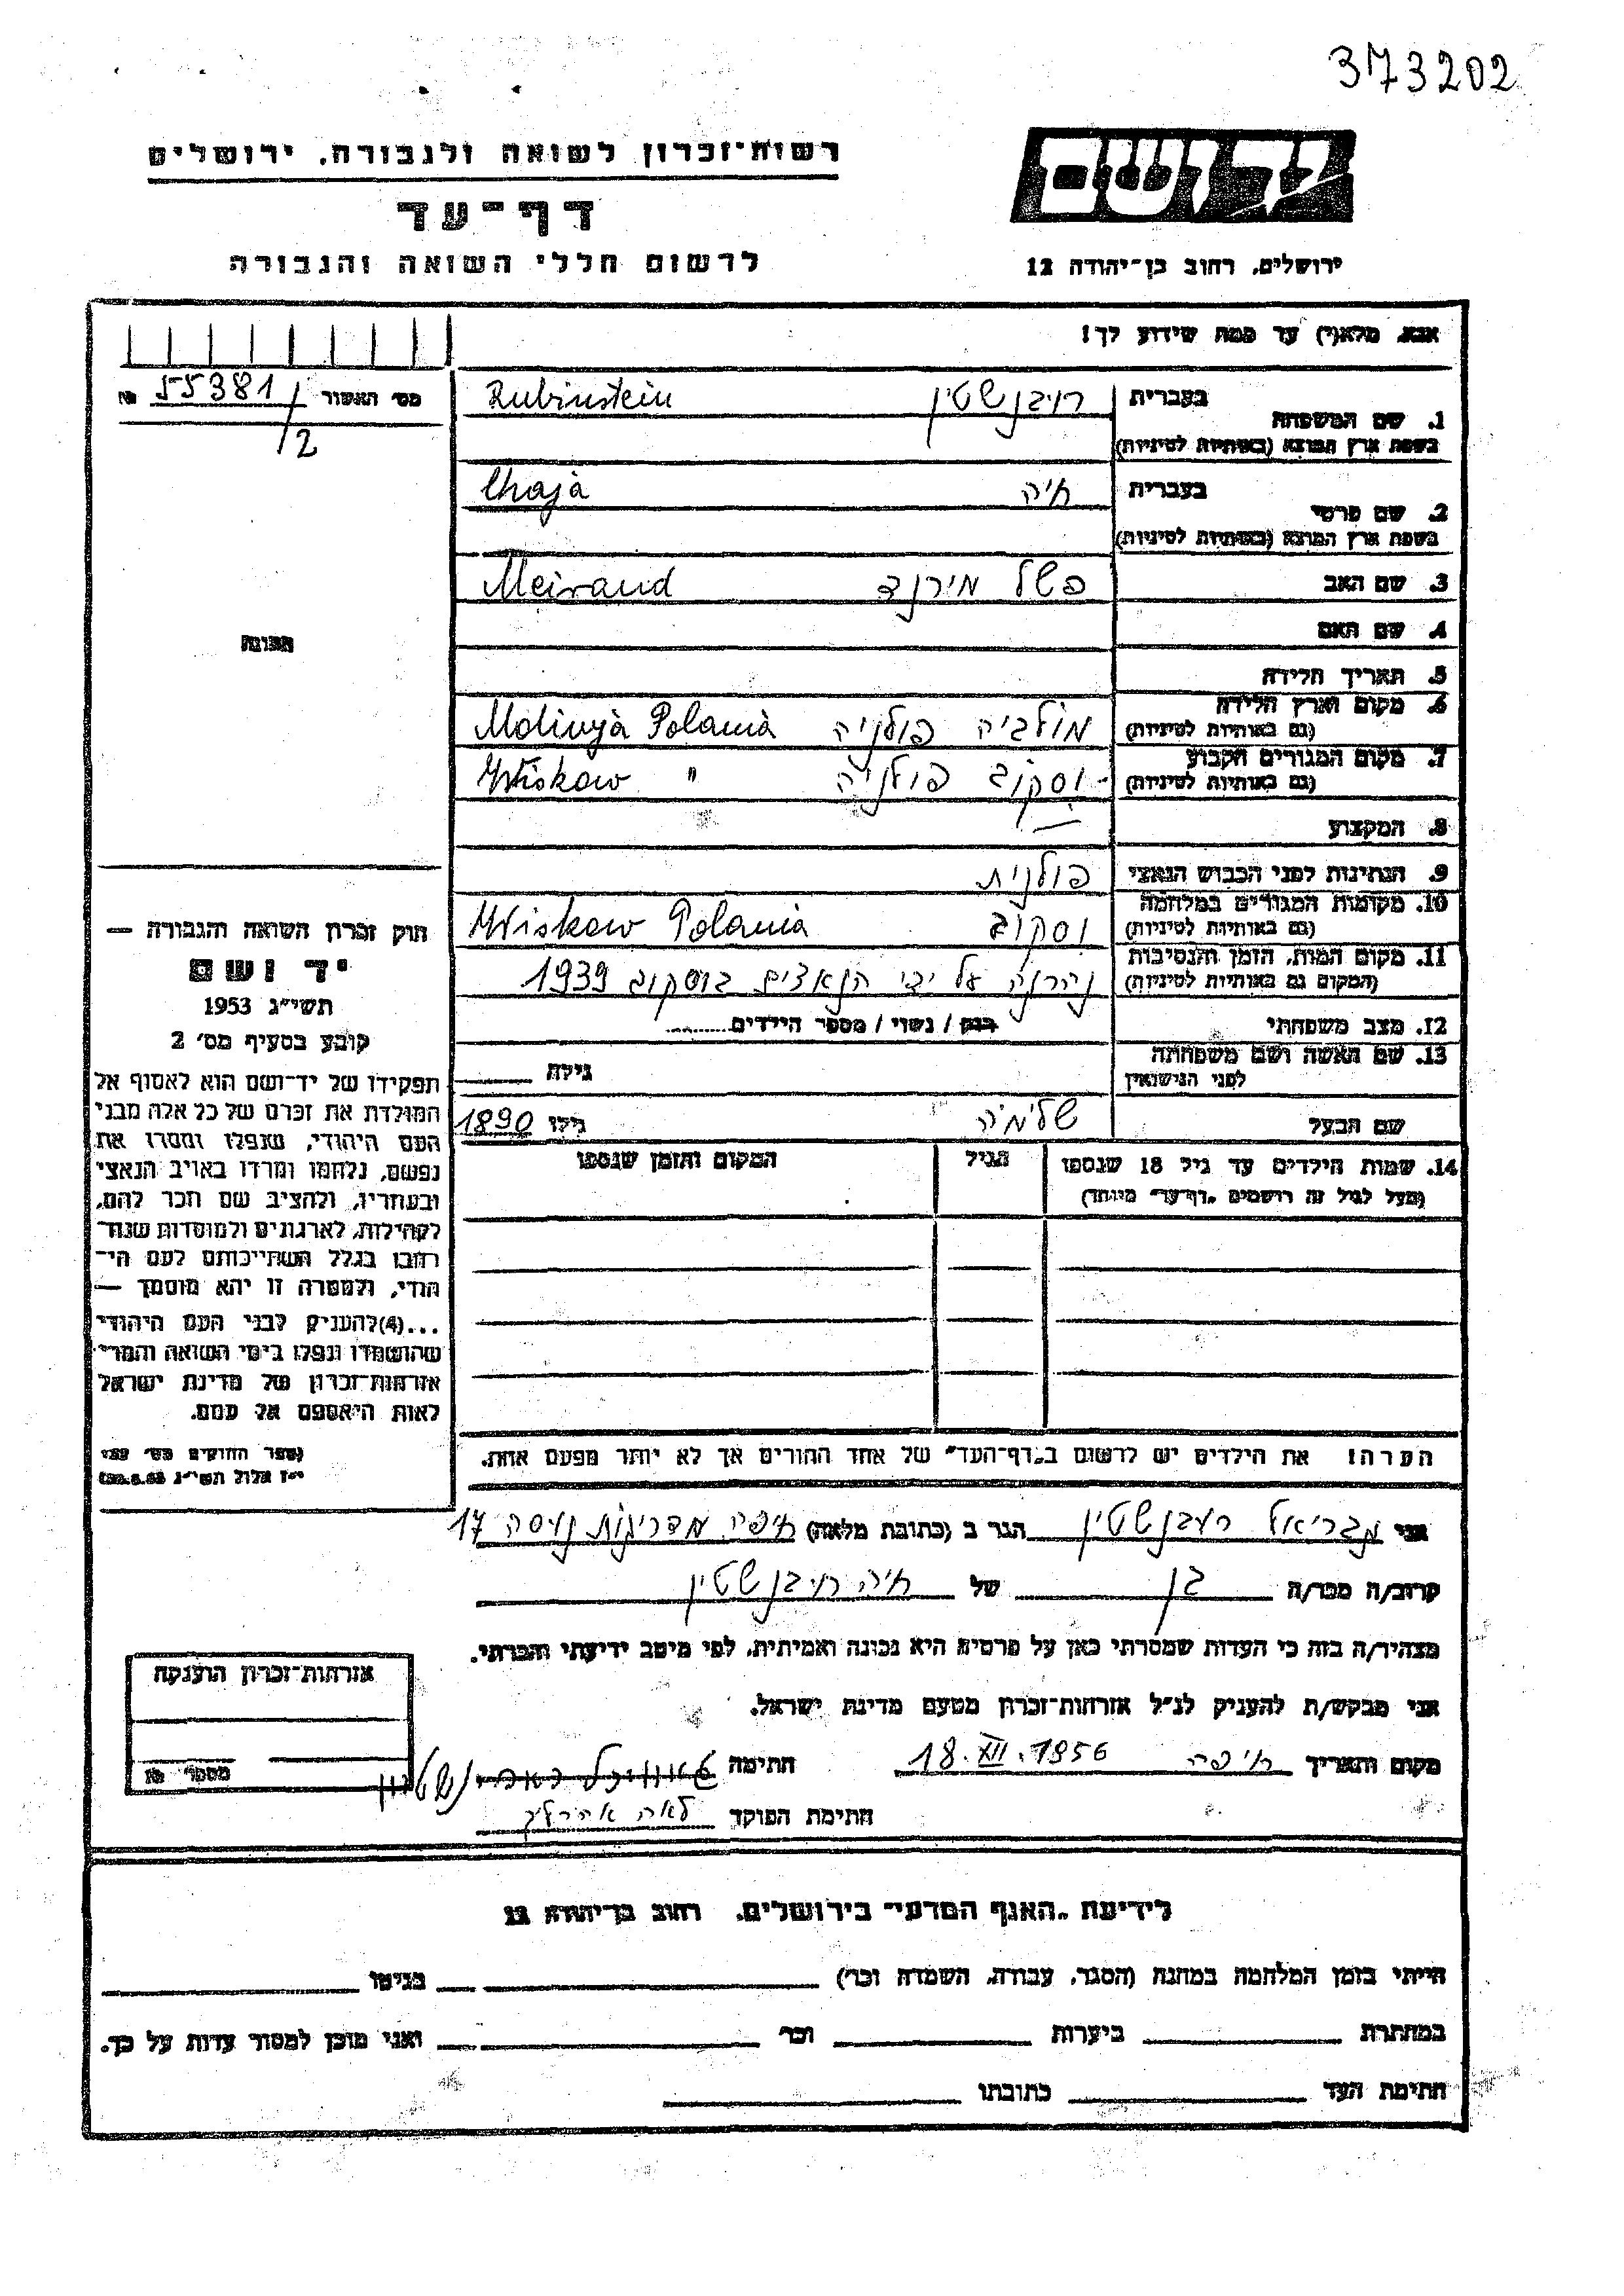 373202
רשות־זכרון לשואה ולגבורה, ירושלים
יד ושם
דף־עד
לרשום חללי השואה והגבורה
ירושלים, רחוב בן־יהודה 12
אנא, מלא(י) עד כמה שידוע לך!
מס׳ האשור № 55381/2
1. שם המשפחה בעברית רויבנשטין Rubinstein
בשפת ארץ המוצא (באותיות לטיניות)
2. שם פרטי בעברית חיה Chaja
בשפת ארץ המוצא (באותיות לטיניות)
3. שם האב פשל מירנד Meirand
4. שם האם
תמונה
5. תאריך הלידה
6. מקום וארץ הלידה מולביה פולניה Molivyja Polania
(גם באותיות לטיניות)
7. מקום המגורים הקבוע וסקוב פולניה Wiskow "
(גם באותיות לטיניות)
8. המקצוע
9. הנתינות לפני הכבוש הנאצי פולנית
10. מקומות המגורים במלחמה וסקוב Wiskow Polania
(גם באותיות לטיניות)
11. מקום המות, הזמן והנסיבות נהרגה על ידי הנאצים בוסקוב 1939
(המקום גם באותיות לטיניות)
12. מצב משפחתי רווק / נשוי / מספר הילדים
13. שם האשה ושם משפחתה
לפני הנישואין גילה
שם הבעל שלימיה גילו 1890
14. שמות הילדים עד גיל 18 שנספו הגיל המקום והזמן שנספו
(מעל לגיל זה רושמים „דף־עד״ מיוחד)
חוק זכרון השואה והגבורה —
יד ושם
תשי״ג 1953
קובע בסעיף מס׳ 2
תפקידו של יד־ושם הוא לאסוף אל
המולדת את זכרם של כל אלה מבני
העם היהודי, שנפלו ומסרו את
נפשם, נלחמו ומרדו באויב הנאצי
ובעוזריו, ולהציב שם וזכר להם,
לקהילות, לארגונים ולמוסדות שנח־
רבו בגלל השתייכותם לעם הי־
הודי, ולמטרה זו יהא מוסמך —
...(4)להעניק לבני העם היהודי
שהושמדו ונפלו בימי השואה והמרי
אזרחות־זכרון של מדינת ישראל
לאות היאספם אל עמם.
(ספר החוקים מס׳ 132
י״ז אלול תשי״ג 28.8.53)
הערה: את הילדים יש לרשום ב„דף־העד״ של אחד ההורים אך לא יותר מפעם אחת.
אני גבריאל רעבנשטין הגר ב (כתובת מלאה) חיפה מדריגות נויסה 17
קרוב/ה מכר/ה בן של חיה רויבנשטין
מצהיר/ה בזה כי העדות שמסרתי כאן על פרטיה היא נכונה ואמיתית, לפי מיטב ידיעתי והכרתי.
אני מבקש/ת להעניק לנ״ל אזרחות־זכרון מטעם מדינת ישראל.
מקום ותאריך חיפה 18.XII.1956 חתימה
חתימת הפוקד לאה
אזרחות־זכרון הוענקה
מספר №
לידיעת „האגף המדעי״ בירושלים, רחוב בן־יהודה 12
הייתי בזמן המלחמה במחנה (הסגר, עבודה, השמדה וכו׳) בגיטו
במחתרת ביערות וכו׳ ואני מוכן למסור עדות על כך.
חתימת העד כתובתו